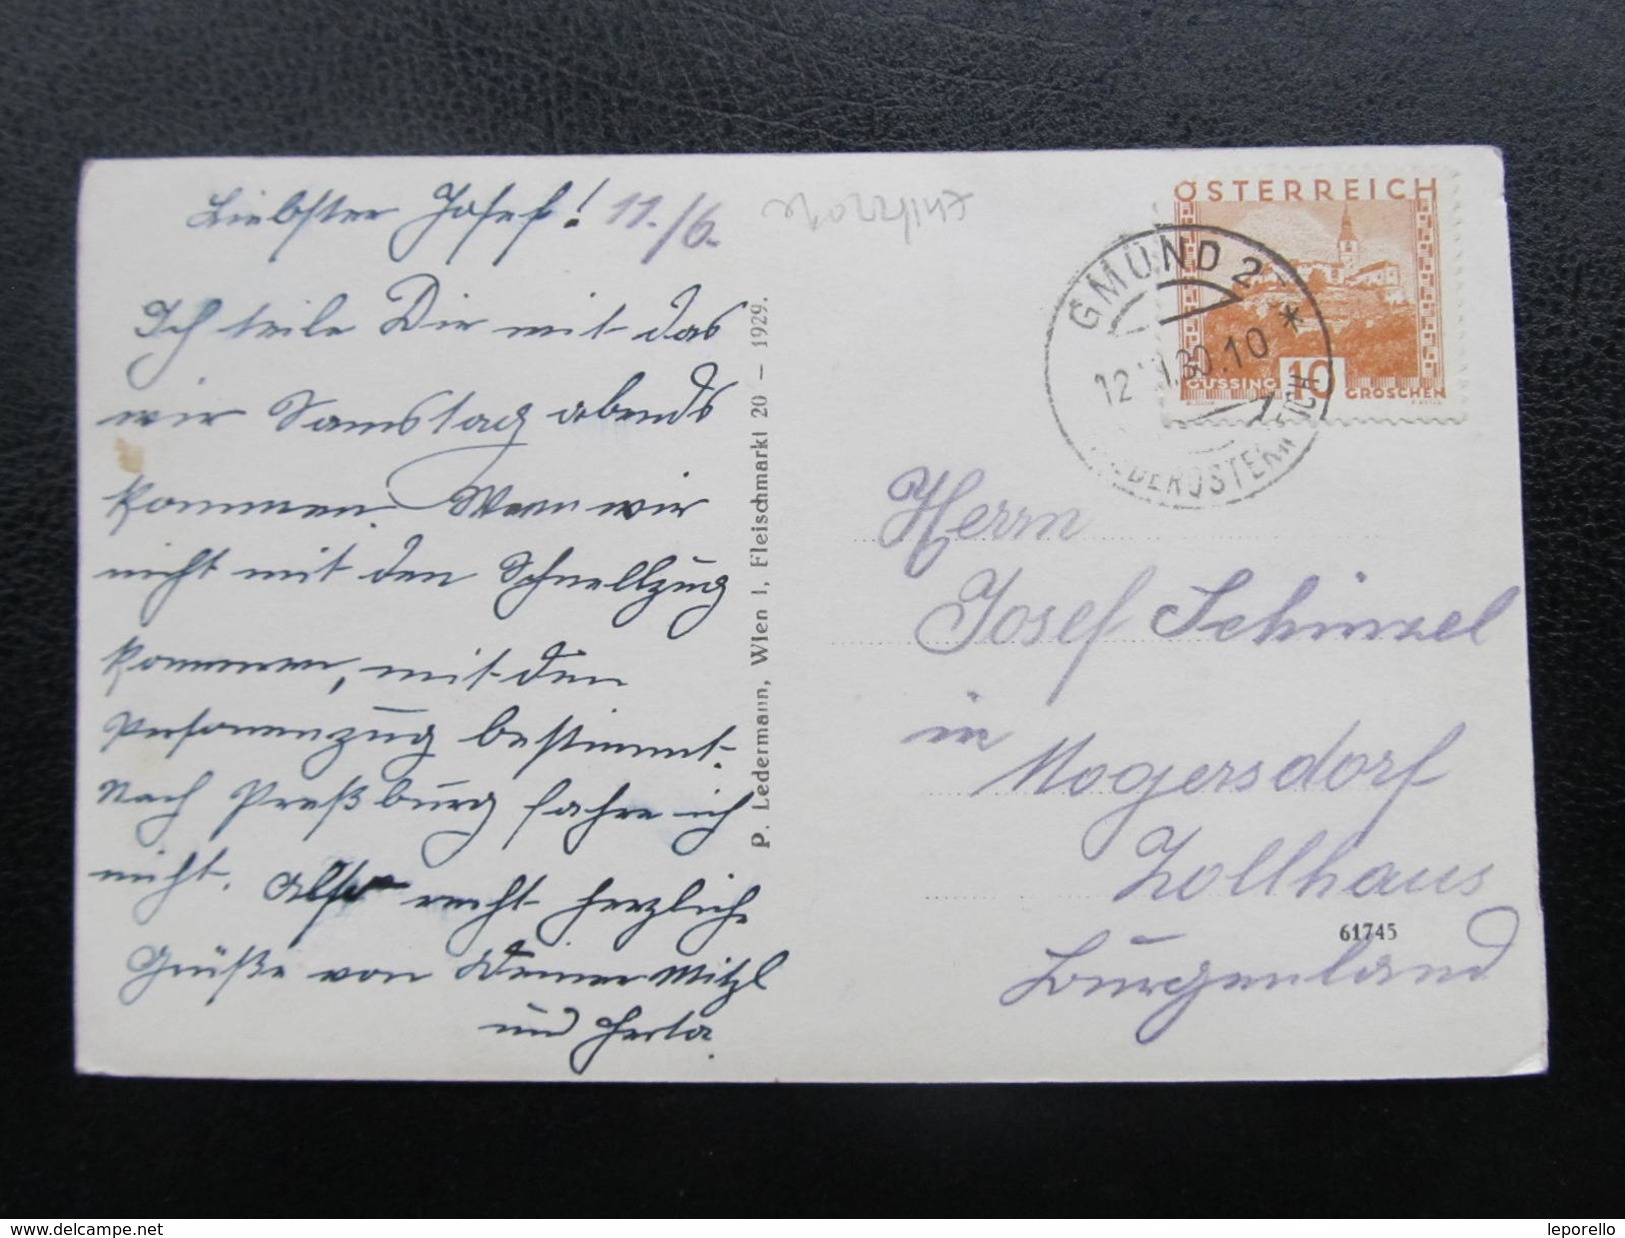 Liebster Josef! 11./6.
Ich teile Dir mit das
wir Samstag abends
kommen. Wenn wir
nicht mit den Schnellzug
kommen, mit den
Personenzug bestimmt.
Nach Preßburg fahre ich
nicht. Also recht herzliche
Grüße von Deiner Mitzl
und Herta.
P. Ledermann, Wien I, Fleischmarkt 20 – 1929.
ÖSTERREICH
GÜSSING 10 GROSCHEN
GMÜND 2
30.10 *
NIEDERÖSTERREICH
Herrn
Josef Schinzel
in
Mogersdorf
Zollhaus
61745
Burgenland
www.delcampe.net
leporello